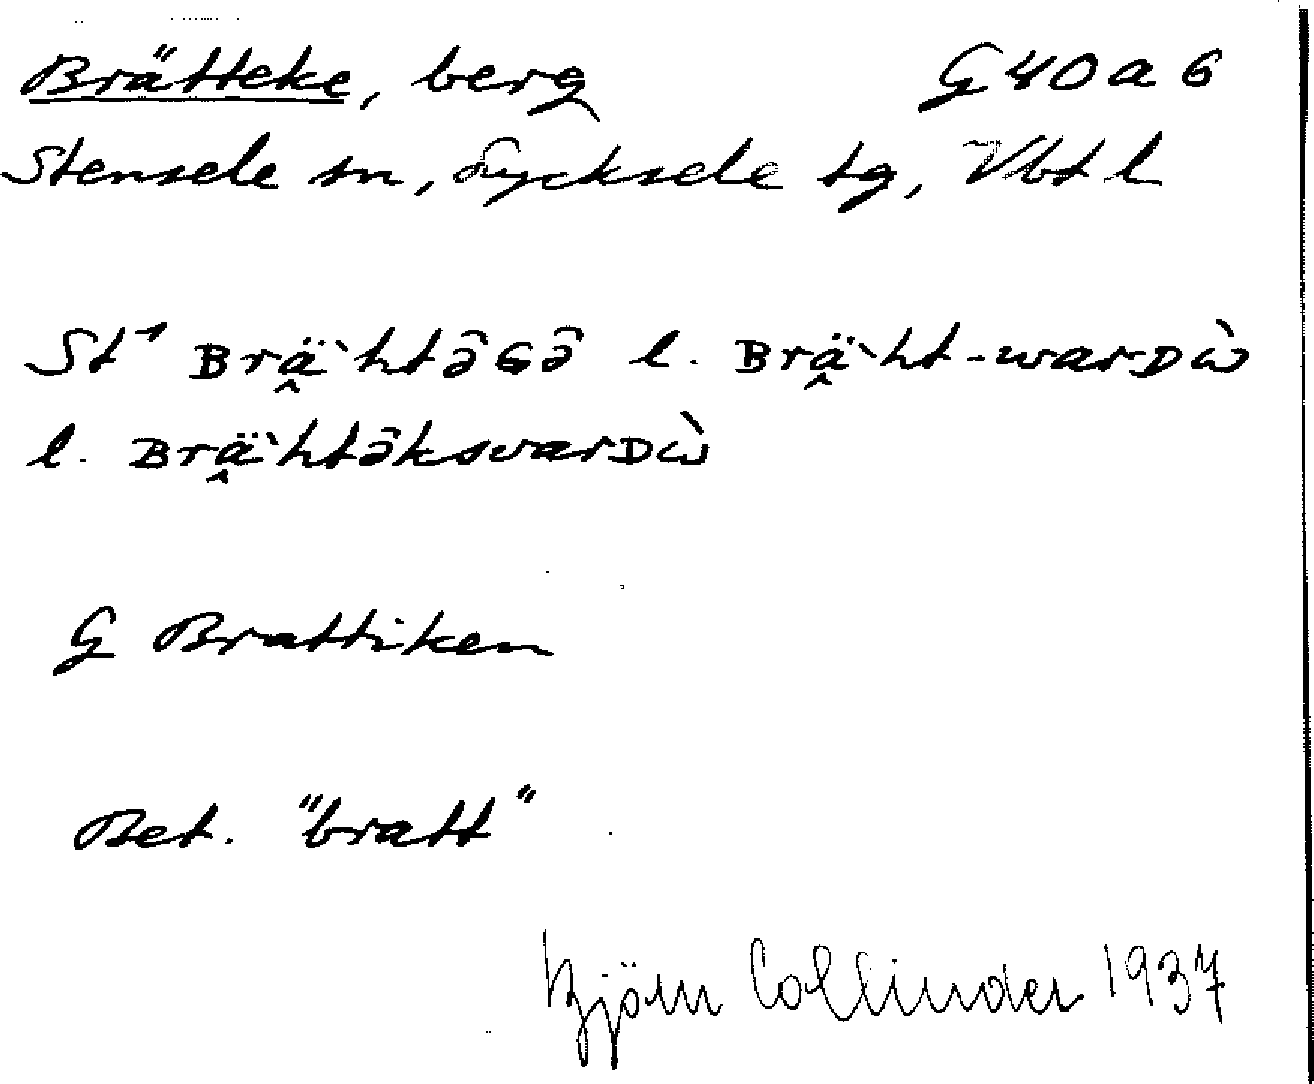 Brätteke, berg G 40 a 6
Stensele sn, Lycksele tg, Vbtl
St¹ Brä̭`htə̂Gə̂ l. Brä̭`ht-warDὼ
l. Brä̭`htə̂ksvarDὼ
G Brattiken
Bet. "bratt"
Björn Collinder 1937